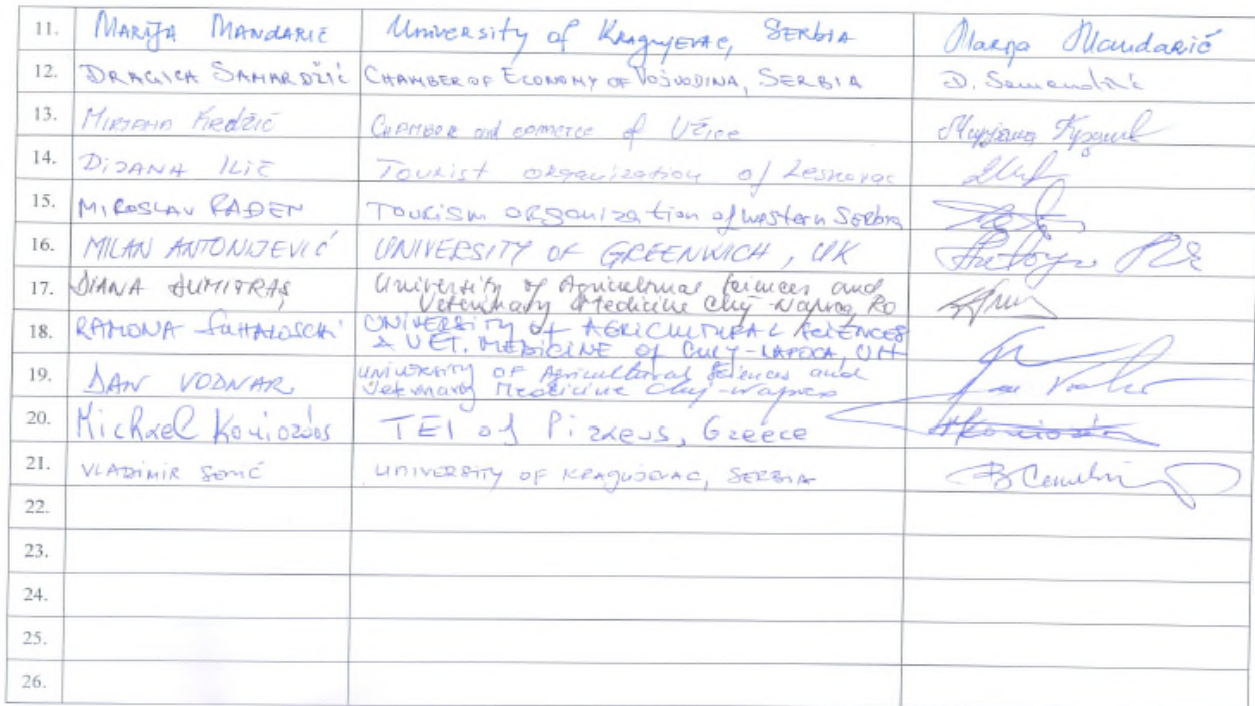 11. MARIJA MANDARIĆ University of KRAGUJEVAC, SERBIA Marija Mandarić
12. DRAGICA SAMARDŽIĆ CHAMBER OF ECONOMY OF VOJVODINA, SERBIA D. Samardžić
13. MIRJANA KREDŽIĆ CHAMBER and commerce of Užice Мирјана
14. DIJANA ILIĆ TOURIST organization of Leskovac
15. MIROSLAV RAĐEN TOURISM ORGANIZATION of western Serbia
16. MILAN ANTONIJEVIĆ UNIVERSITY OF GREENWICH, UK
17. DIANA DUMITRAȘ University of Agricultural Sciences and
Veterinary Medicine Cluj-Napoca, RO
18. RAMONA UNIVERSITY of AGRICULTURAL SCIENCES
& VET. MEDICINE of CLUJ-NAPOCA,
19. DAN VODNAR University of Agricultural Sciences and
Veterinary Medicine Cluj-Napoca
20. Michael TEI of Piraeus, Greece
21. VLADIMIR SENIĆ UNIVERSITY OF KRAGUJEVAC, SERBIA
22.
23.
24.
25.
26.